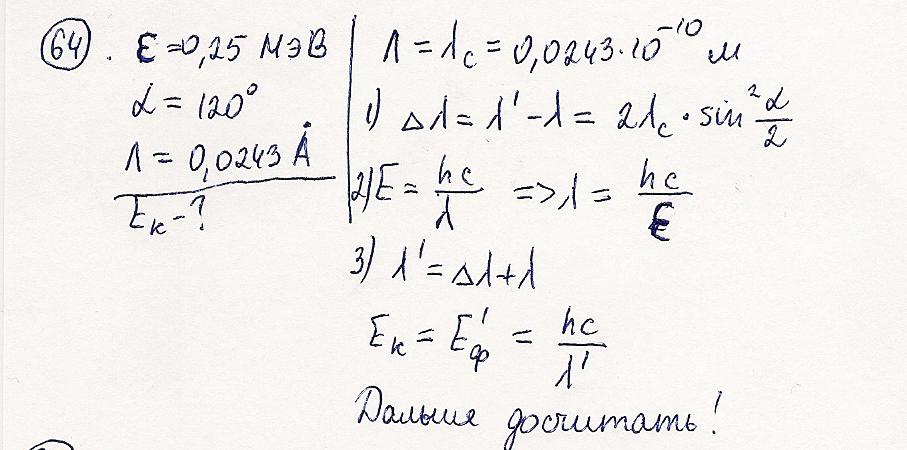 64. ε = 0,25 МэВ
α = 120°
Λ = 0,0243 Å
Eк - ?
Λ = λc = 0,0243·10⁻¹⁰ м
1) Δλ = λ' - λ = 2λc · sin² α/2
2) E = hc/λ => λ = hc/ε
3) λ' = Δλ + λ
Eк = E'ф = hc/λ'
Дальше досчитать!